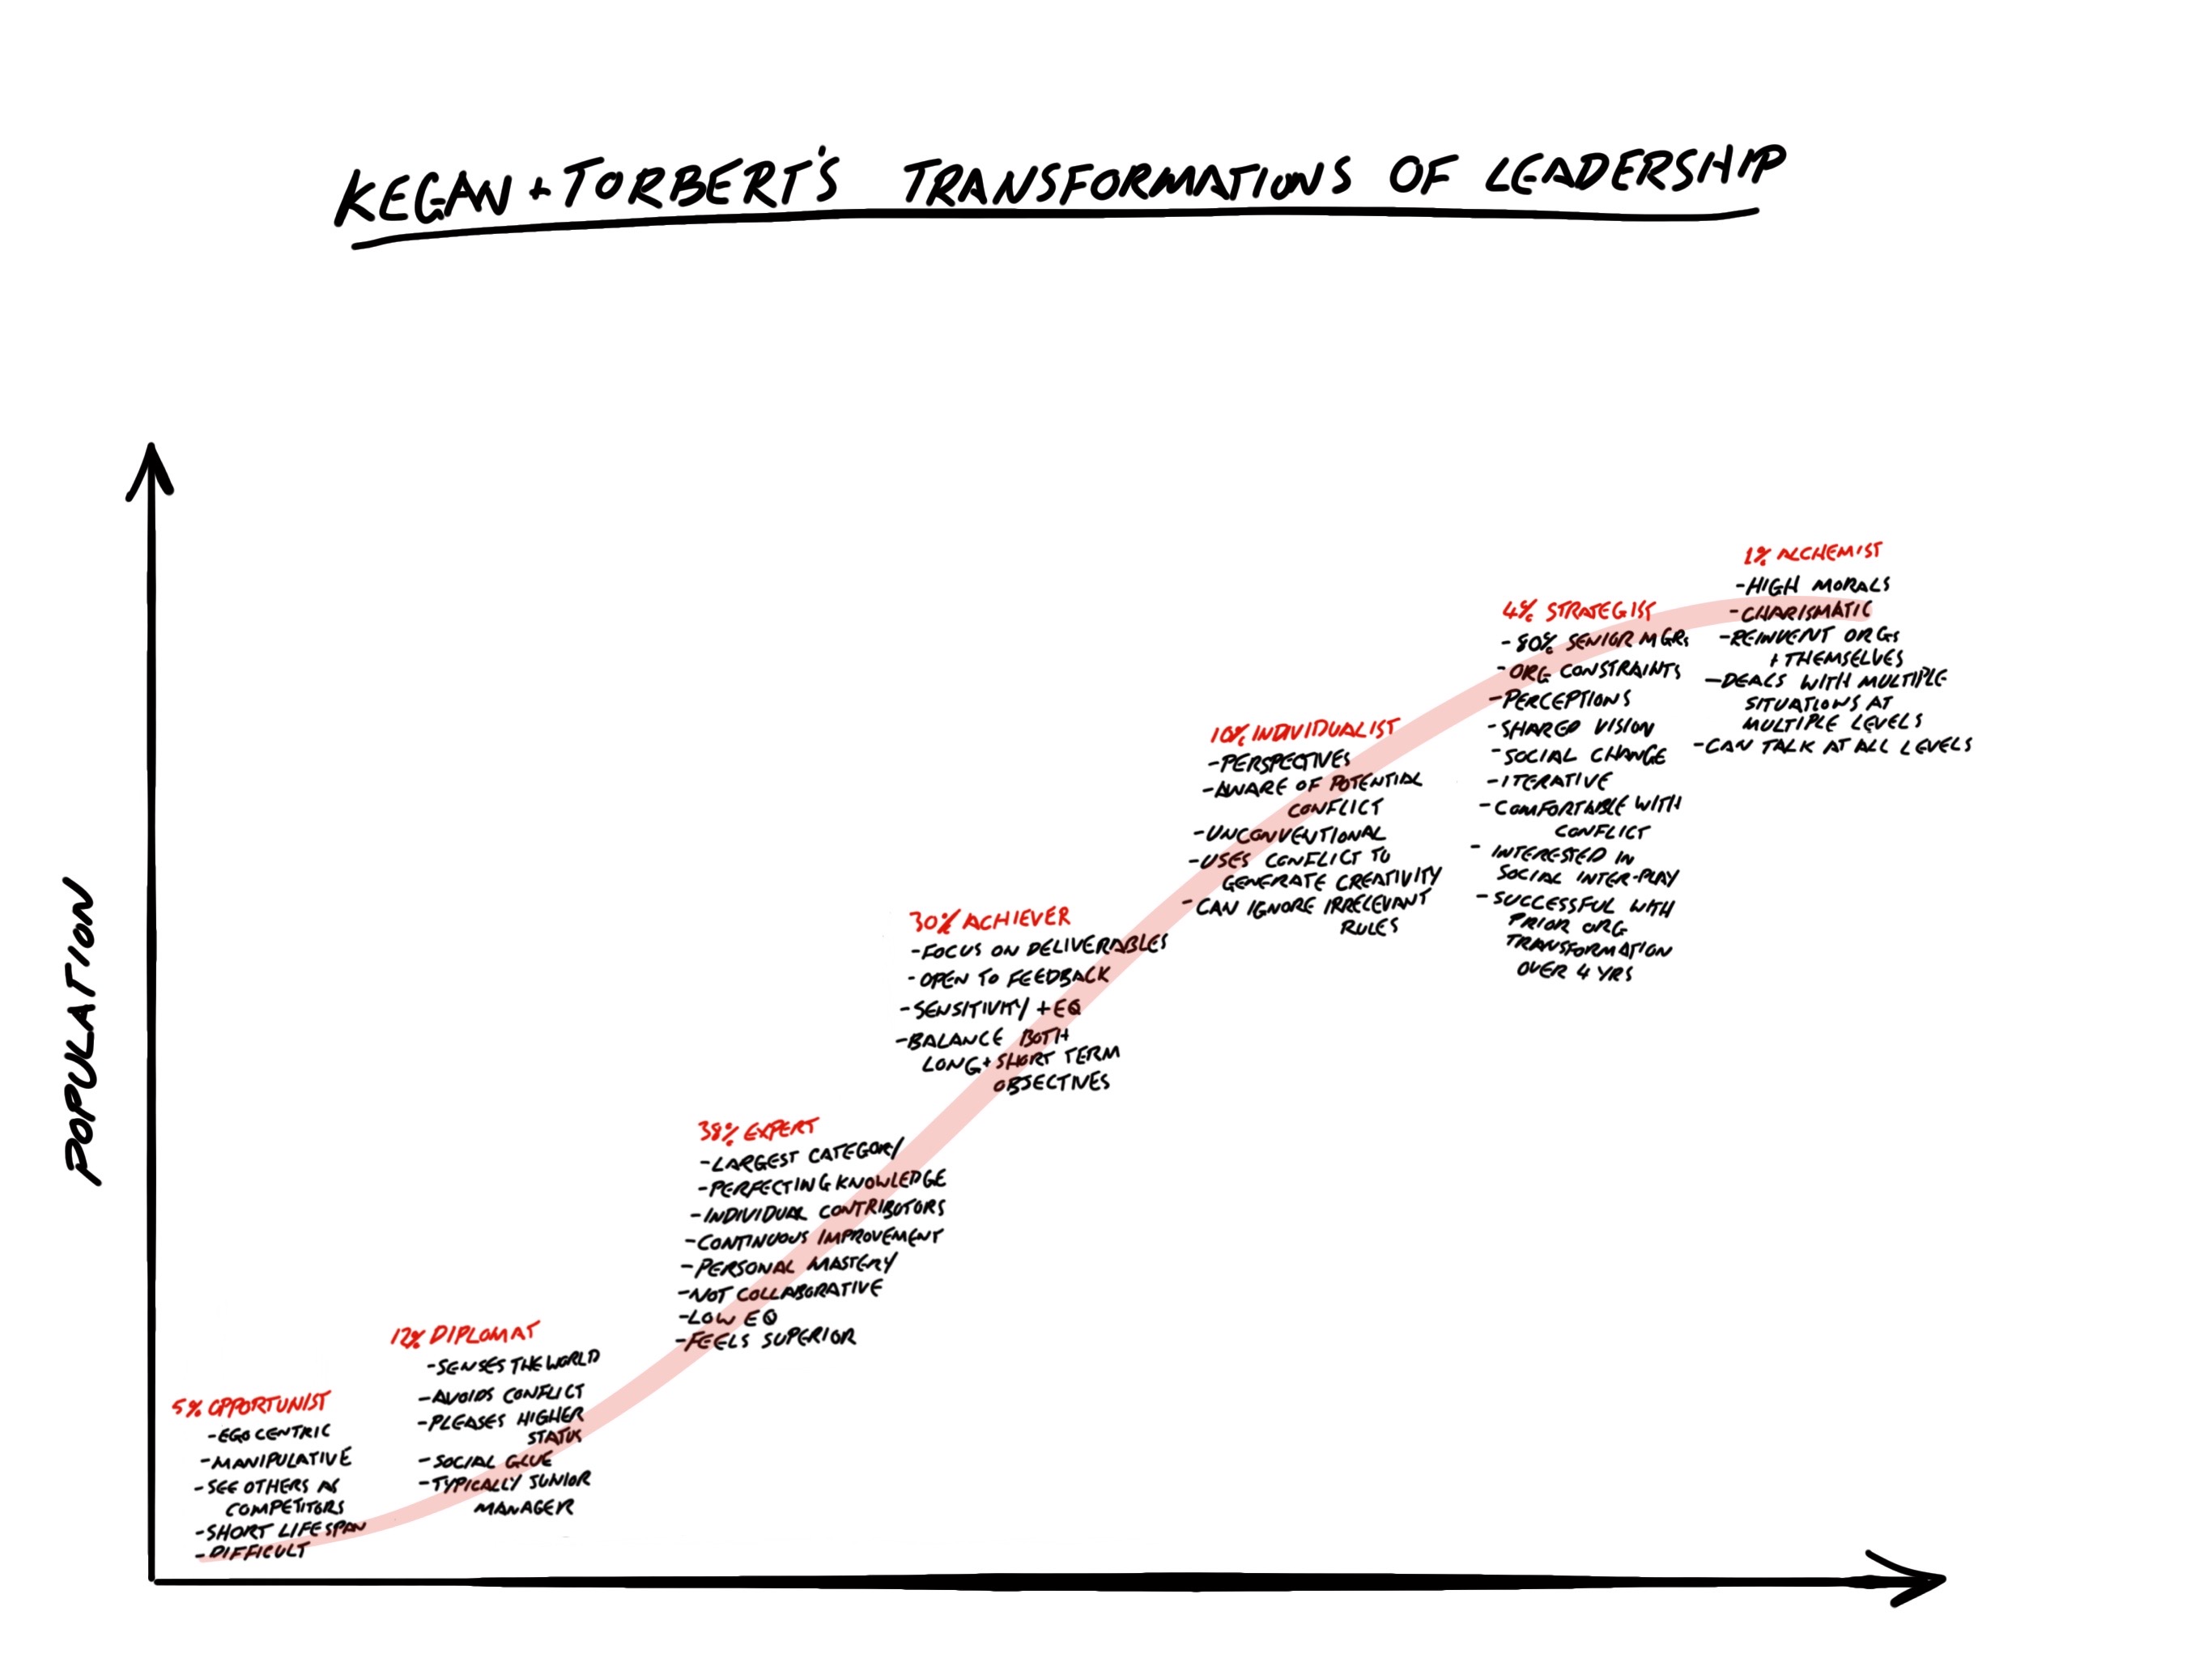 KEGAN + TORBERT'S TRANSFORMATIONS OF LEADERSHIP
POPULATION
5% OPPORTUNIST
- EGO CENTRIC
- MANIPULATIVE
- SEE OTHERS AS
COMPETITORS
- SHORT LIFESPAN
- DIFFICULT
12% DIPLOMAT
- SENSES THE WORLD
- AVOIDS CONFLICT
- PLEASES HIGHER
STATUS
- SOCIAL GLUE
- TYPICALLY JUNIOR
MANAGER
38% EXPERT
- LARGEST CATEGORY
- PERFECTING KNOWLEDGE
- INDIVIDUAL CONTRIBUTORS
- CONTINUOUS IMPROVEMENT
- PERSONAL MASTERY
- NOT COLLABORATIVE
- LOW EQ
- FEELS SUPERIOR
30% ACHIEVER
- FOCUS ON DELIVERABLES
- OPEN TO FEEDBACK
- SENSITIVITY + EQ
- BALANCE BOTH
LONG + SHORT TERM
OBJECTIVES
10% INDIVIDUALIST
- PERSPECTIVES
- AWARE OF POTENTIAL
CONFLICT
- UNCONVENTIONAL
- USES CONFLICT TO
GENERATE CREATIVITY
- CAN IGNORE IRRELEVANT
RULES
4% STRATEGIST
- 80% SENIOR MGRS
- ORG CONSTRAINTS
- PERCEPTIONS
- SHARED VISION
- SOCIAL CHANGE
- ITERATIVE
- COMFORTABLE WITH
CONFLICT
- INTERESTED IN
SOCIAL INTER-PLAY
- SUCCESSFUL WITH
PRIOR ORG
TRANSFORMATION
OVER 4 YRS
1% ALCHEMIST
- HIGH MORALS
- CHARISMATIC
- REINVENT ORGS
+ THEMSELVES
- DEALS WITH MULTIPLE
SITUATIONS AT
MULTIPLE LEVELS
- CAN TALK AT ALL LEVELS